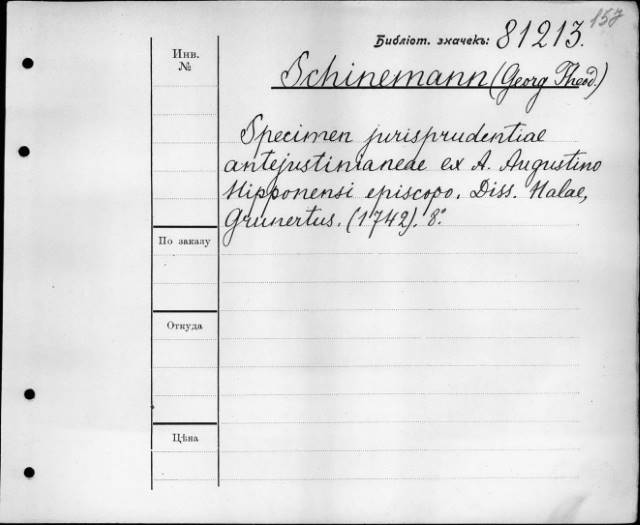 157
Библіот. значекъ: 81213.
Инв.
№
Schinemann (Georg Theod.)
Specimen jurisprudentiae
antejustinianeae ex A. Augustino
Hipponensi episcopo. Diss. Halae,
Grunertus. (1742). 8°.
По заказу
Откуда
Цѣна